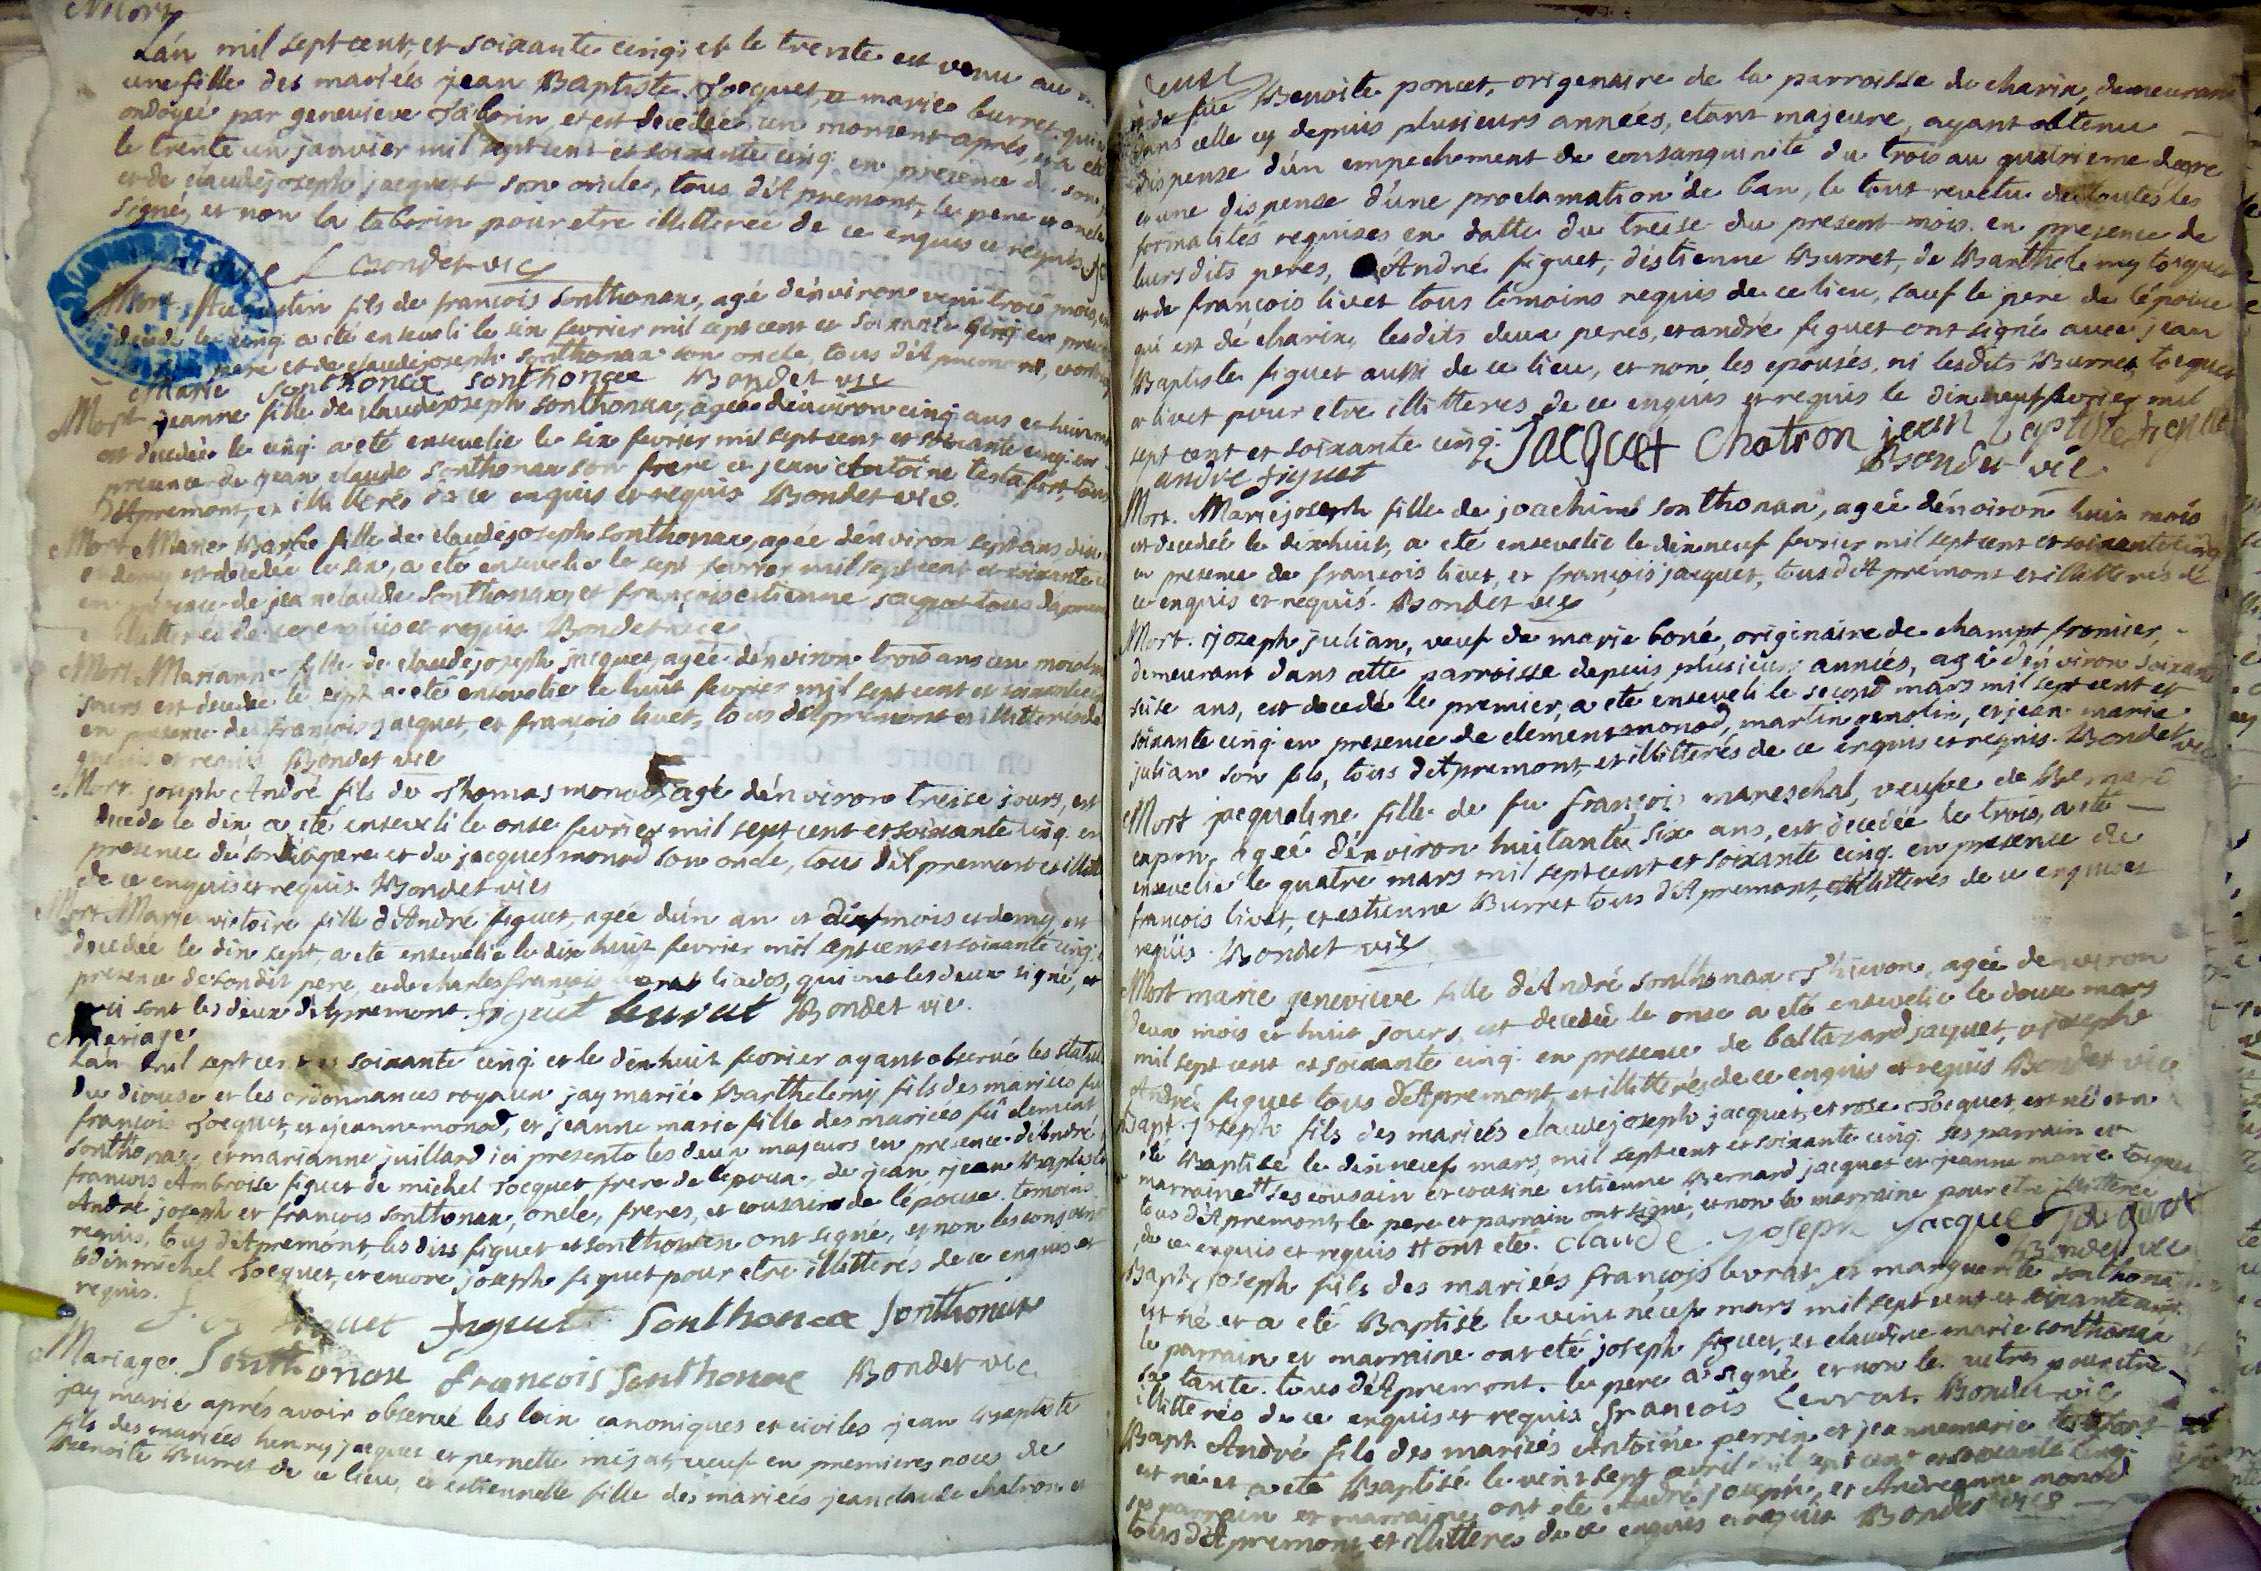 Mort
Lán mil sept cent, et soixante cinq, et le trente est venu au
une fille des mariées jean Baptiste Tocquet, et marie burret qui
ondoyée par genevieve Taborin, et est decedée un moment aprés, et a eté
le trente un janvier mil sept cent et soixante cinq. en presence de son
et de claudejoseph jacquet son oncle, tous d'Apremont, le pere et oncle
signé, et non la taborin pour etre illitterée de ce enquis et requis
Bondet vic
Mort. Augustin fils de françois Sonthonax, agé d'énviron vein trois mois,
le cinq a eté enseveli le six fevrier mil sept cent et soixante cinq en
pere et de claudejoseph sonthonax son oncle, tous d'Apremont,
Marie Sonthonax sonthonax Bondet vic
Mort jeanne fille de claudejoseph sonthonax, agée d'énviron cinq ans et huit
est decedée le cinq. a eté ensevelie le six fevrier mil sept cent et soixante cinq. en
presence de jean claude sonthonax son frere et jean Antoine testafort, tous
d'Apremont, et illitterés de ce enquis et requis Bondet vic.
Mort Marie Barbe fille de claudejoseph sonthonax, agée d'énviron sept ans
et demy est decedée le six, a eté ensevelie le sept fevrier mil sept cent et soixante
en presence de jean claude Sonthonax, et françois estienne jacquet tous
illitterés de ce enquis et requis Bondet vic
Mort Marianne fille de claudejoseph jacquet, agée d'énviron trois ans un mois
jours est decedée le sept a eté ensevelie le huit fevrier mil sept cent et soixante
en presence de françois jacquet, et françois livet, tous d'Apremont et illitterés de
et requis Bondet vic
Mort joseph André fils de Thomas monod agé d'énviron treise jours, est
decedé le dix a eté enseveli le onse fevrier mil sept cent et soixante cinq. en
presence de sondit pere et de jacques monod son oncle, tous d'Apremont et
de ce enquis et requis. Bondet vic
Mort Marie victoire fille d'André figuet, agée d'un an et dix mois et demy, est
decedée le dix sept, a eté ensevelie le dix huit fevrier mil sept cent et soixante cinq.
presence de sondit pere, et de charles françois qui ont les deux signé, et
qui sont les deux d'Apremont. figuet Bondet vic.
Mariage
Lan mil sept cent et soixante cinq et le dix huit fevrier ayant observé les statuts
du diocese et les ordonnances royaux jay mariée Barthelemy fils des mariées fu
françois Tocquet, et jeanne monod, et jeanne marie fille des mariées fü clement
sonthonax, et marianne juillard ici presente les deux majeurs en presence d'André
françois Ambroise figuet de michel Tocquet frere de lepoux, de jean, jean Baptiste
André joseph et françois sonthonax, oncle, freres, et cousins de l'épouse. temoins
requis, tous d'Apremont, les dits figuet et sonthonax ont signé, et non les conjoints
ledit michel Tocquet, et encore joseph figuet pour etre illitterés de ce enquis et
requis.
figuet figuet Sonthonax Sonthonax
Sonthonax francois Sonthonax Bondet vic.
Mariage.
jay marié aprés avoir observé les loix canoniques et civiles jean Baptiste
fils des mariées henry jacquet et pernette mijat, veuf en premieres noces de
Benoite Burret de ce lieu, et estiennette fille des mariées jean claude chatron et
de fue Benoite poncet, origenaire de la parroisse de charix, demeurant
dans celle cy depuis plusieurs années, etant majeure, ayant obtenu
dispense d'un empechement de consanguinité du trois au quatrieme degre
et une dispense d'une proclamation de ban, le tout revetu de toutes les
formalités requises en datte du treise du present mois. en presence de
leurs dits peres, d'André figuet, d'estienne Burret, de Barthelemy tocquet
et de françois livet tous témoins requis de ce lieu, sauf le pere de lépouse
qui est de charix, lesdits deux peres, et andré figuet ont signé avec jean
Baptiste figuet aussi de ce lieu, et non les epousés, ni lesdits Burret, tocquet
et livet pour etre illitteres de ce enquis et requis le dix neuf fevrier mil
sept cent et soixante cinq. Jacquet Chatron jean baptiste figuet
andré figuet Bondet vic
Mort. Marie joseph fille de joachim sonthonax, agée d'énviron huit mois
est decedée le dix huit, a eté ensevelie le dix neuf fevrier mil sept cent et soixante cinq
en presence de françois livet, et françois jacquet, tous d'Apremont et illitterés de
ce enquis et requis. Bondet vic
Mort. joseph julian, veuf de marie boné, originaire de champt fromier,
demeurant dans cette parroisse depuis plusieurs années, agé d'énviron soixante
seise ans, est decedé le premier, a eté enseveli le second mars mil sept cent et
soixante cinq en presence de clement monod, martin genolin, et jean marie
julian son fils, tous d'Apremont, et illitterés de ce enquis et requis. Bondet vic
Mort jacqueline fille de fu françois mareschal, veufve de Bernard
capon, agée d'énviron huitante six ans, est decedée le trois, a eté
ensevelie le quatre mars mil sept cent et soixante cinq. en presence de
françois livet, et estienne Burret tous d'Apremont, et illitterés de ce enquis et
requis. Bondet vic
Mort marie genevieve fille d'André sonthonax Thievon, agée d'environ
deux mois et huit jours, est decedée le onse a eté ensevelie le douse mars
mil sept cent et soixante cinq. en presence de baltazard jacquet, et joseph
André figuet tous d'Apremont, et illitterés de ce enquis et requis Bondet vic
Bapt. joseph fils des mariées claudejoseph jacquet, et rose Tocquet, est né et a
été Baptisé le dix neuf mars, mil sept cent et soixante cinq. ses parrain et
marraine # ses cousain et cousine estienne Bernard jacquet et jeanne marie tocquet
tous d'Apremont, le pere et parrain ont signé, et non la marraine pour etre illitterée
de ce enquis et requis # ont eté. Claude joseph Jacquet jacquet
Bondet vic
Bapt. Joseph fils des mariées françois levrat, et marguerite sonthonax
est né et a eté Baptisé le vint neuf mars mil sept cent et soixante cinq.
le parrain et marraine ont eté joseph figuet, et claudine marie sonthonax
sa tante. tous d'Apremont. le pere a signé et non les autres pour etre
illitterés de ce enquis et requis francois Levrat. Bondet vic
Bapt. André fils des mariées Antoine perrin et jeanne marie testafort
est né et a eté Baptisé le vint sept avril mil sept cent et soixante cinq.
ses parrain et marraine ont eté André joseph, et Andreanne monod
tous d'Apremont et illitteres de ce enquis et requis Bondet vic